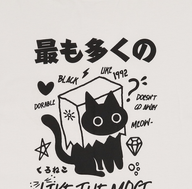 最も多くの
BLACK LIKE 1992
DORABLE
DOESN'T
GO AWAY
MEOW-
くろねこ
THE MOST